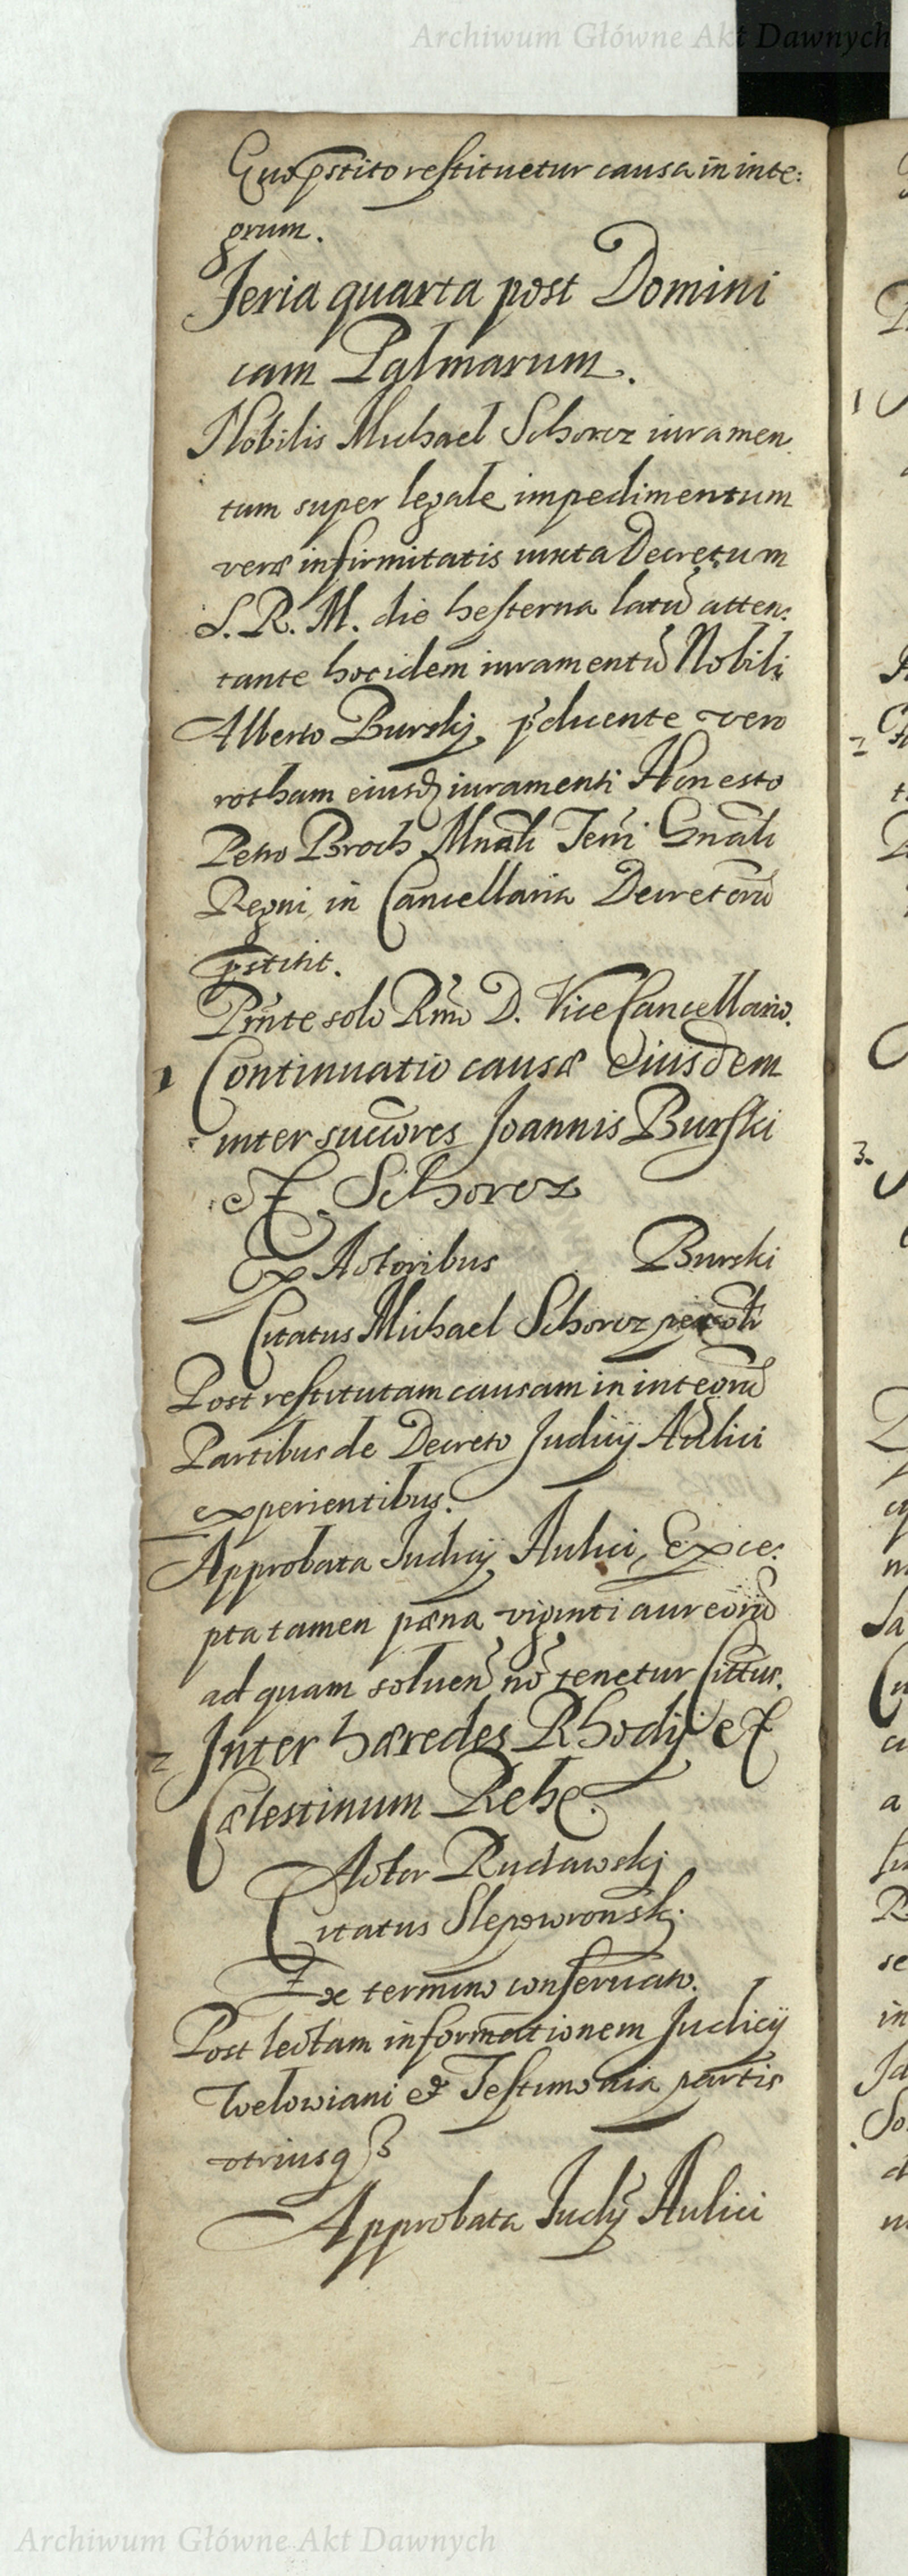 Archiwum Główne Akt Dawnych
Quo pstito restituetur causa in inte:
grum.
Feria quarta post Domini
cam Palmarum.
Nobilis Michael Schorcz iuramen
tum super legale impedimentum
veræ infirmitatis iuxta Decretum
S. R. M. die hesterna latũ atten:
tante hoc idem iuramentũ Nobili
Alberto Burskj, pducente vero
rotham eiusdȝ iuramenti Honesto
Petro Broch Mnãli Terri Gnãli
Regni in Cancellaria Decretorũ
pstitit.
Pnte solo Rmo D. Vice Cancellario.
1 Continuatio causæ eiusdem
inter succores Joannis Burski
et Schorcz
Ex Actoribus Burski
Citatus Michael Schorcz
Post restitutam causam in integrũ
Partibus de Decreto Judicij Aulici
experientibus.
Approbata Judicij Aulici, Exce:
pta tamen pæna viginti aureorũ
ad quam soluen nõ tenetur Cittus.
2 Inter hæredes Rhodij et
Cælestinum Rehe.
Actor Rudawskj
Citatus Slepowronskj
Ex termino conseruato.
Post lectam informationem Judicij
Woelowiani et Testimonia partis
vtriusqȝ
Approbata Judij Aulici
Archiwum Główne Akt Dawnych